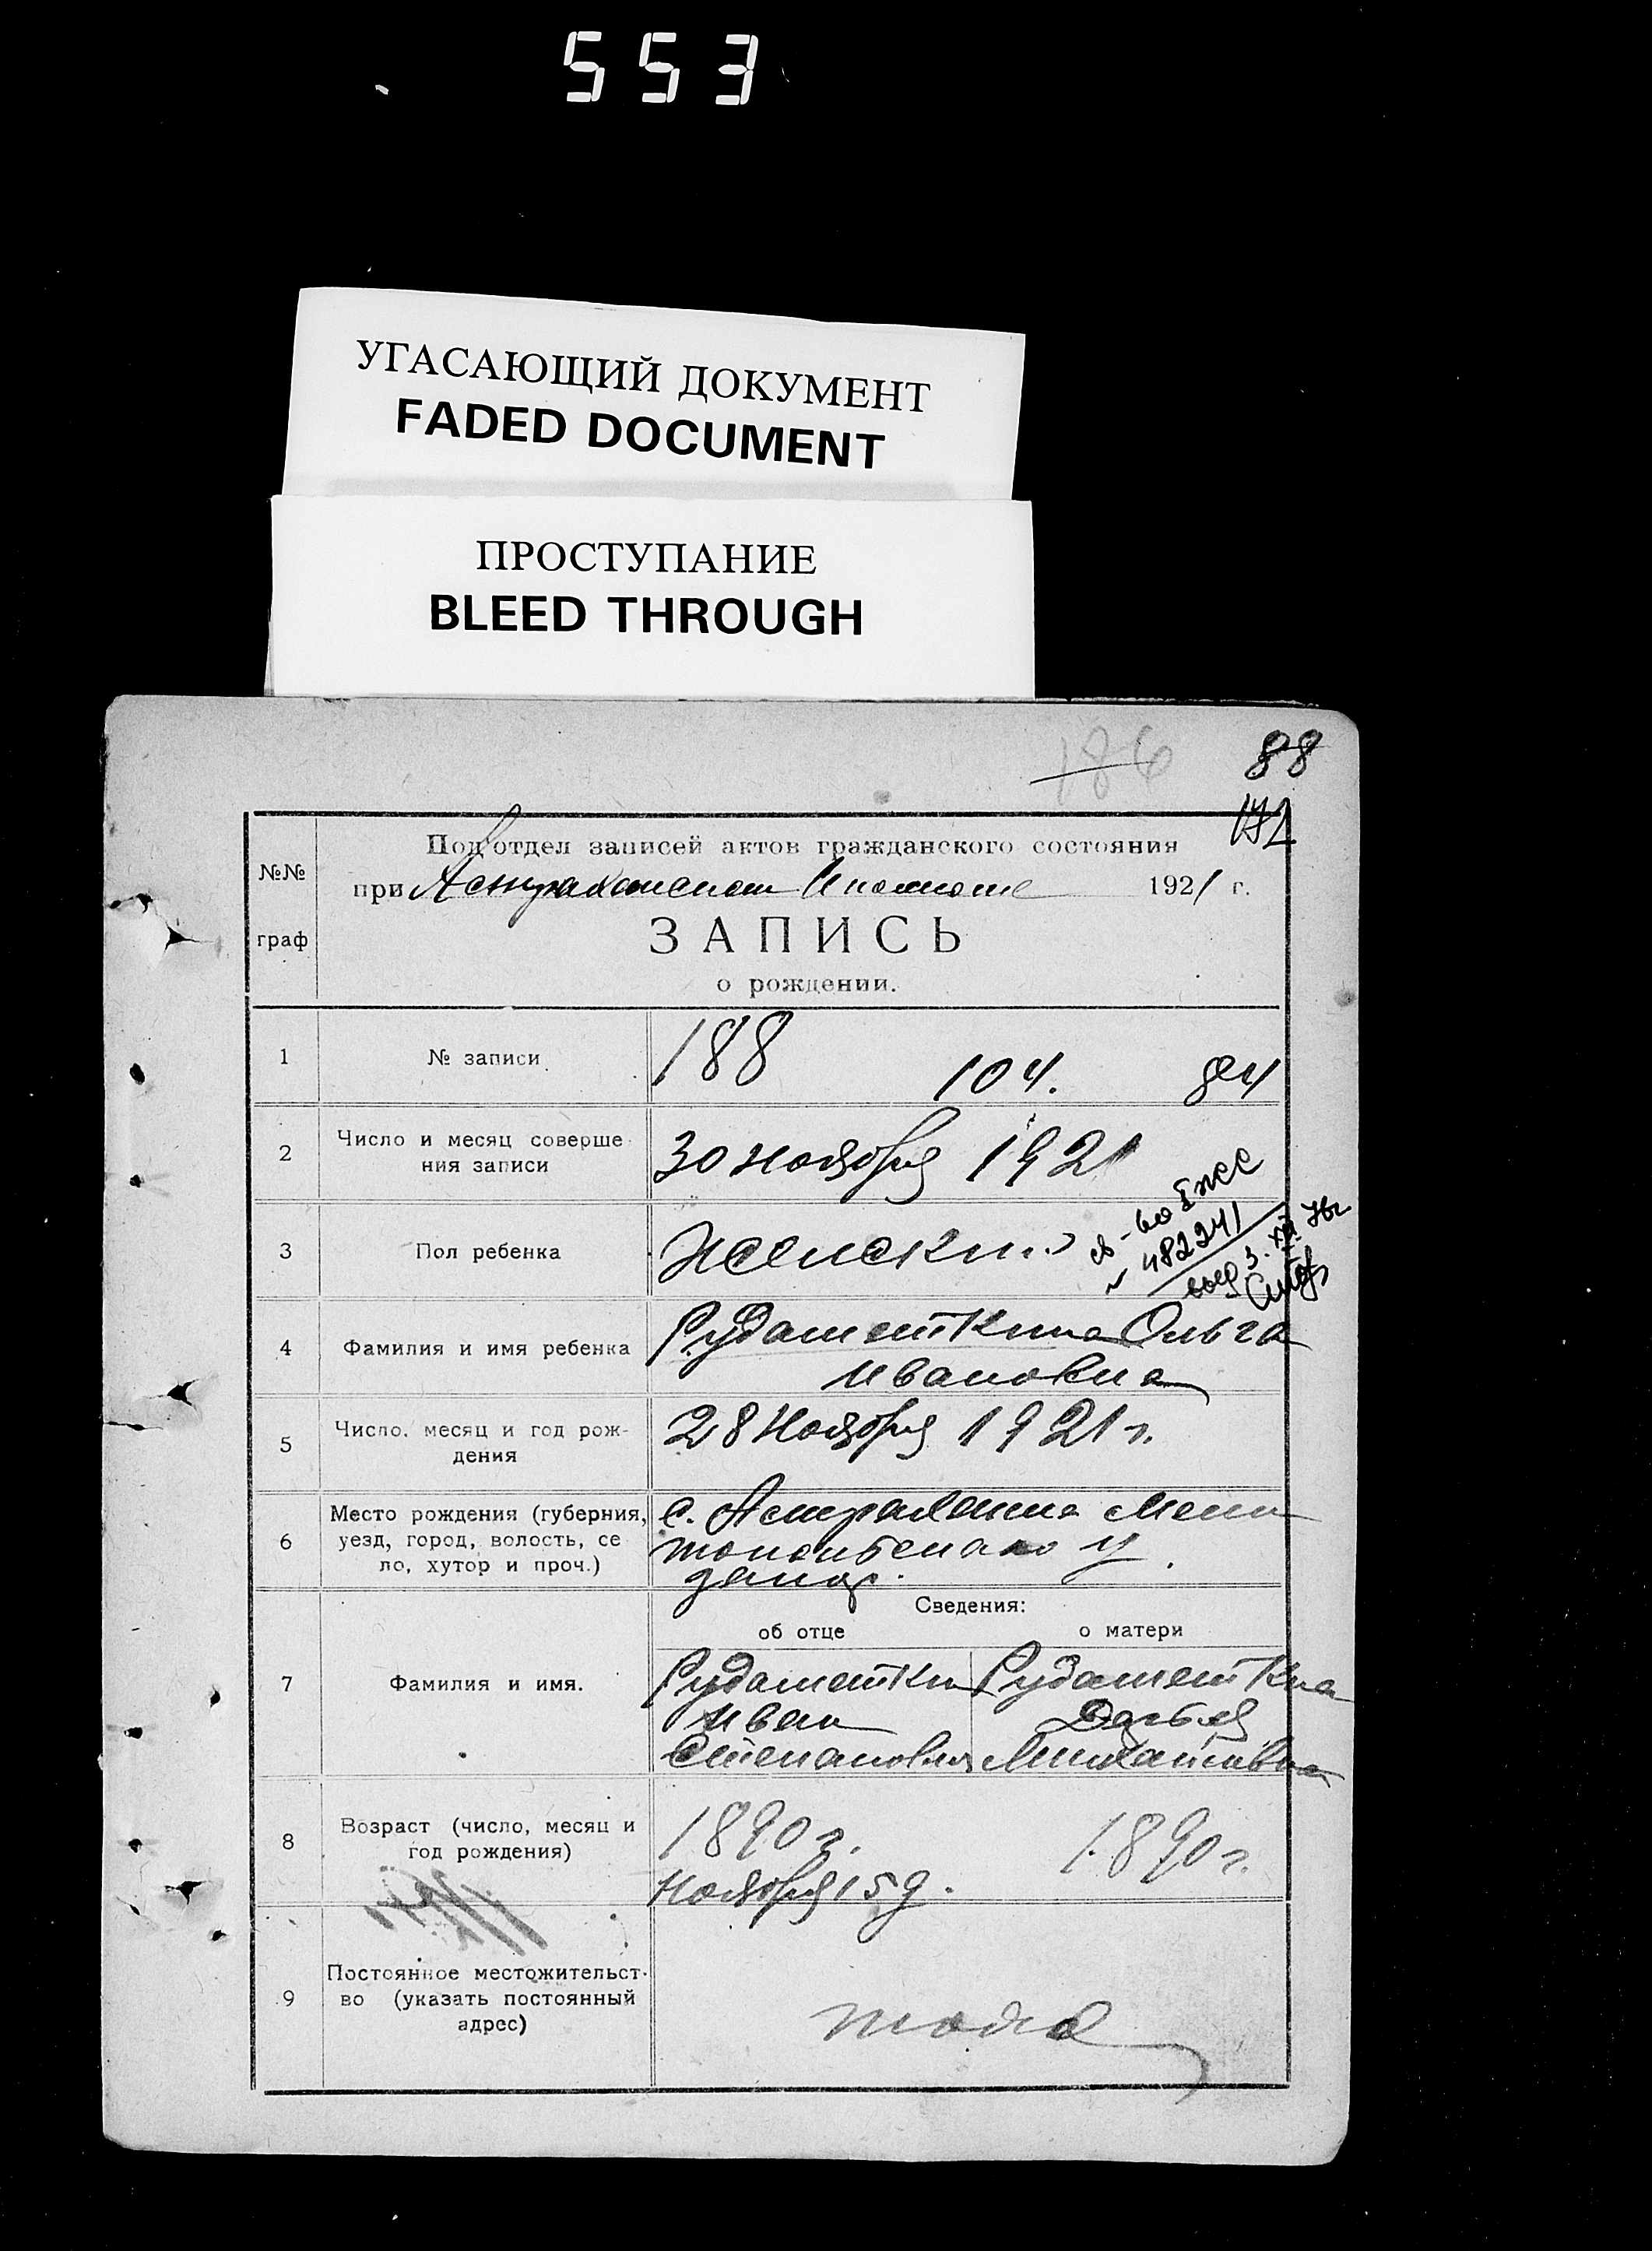 553
УГАСАЮЩИЙ ДОКУМЕНТ
FADED DOCUMENT
ПРОСТУПАНИЕ
BLEED THROUGH
186
88
Под'отдел записей актов гражданского состояния
№№
при Астраханском 1921 г.
граф
ЗАПИСЬ
о рождении.
1 № записи 188 104.
2 Число и месяц соверше-
ния записи
30 ноября 1921
3 Пол ребенка Женский
св-во
№ 482241
выд 3. XII 76г
4 Фамилия и имя ребенка
Рудаметкина Ольга
Ивановна
5 Число, месяц и год рож-
дения
28 Ноября 1921 г.
6 Место рождения (губерния,
уезд, город, волость, се
ло, хутор и проч.)
с. Астраханка Мели
топольскаго у
запор.
Сведения:
об отце о матери
7 Фамилия и имя.
Рудаметкин Рудаметкина
Иван Дарья
Степанович Михайловна
8 Возраст (число, месяц и
год рождения)
1890 г. 1890 г.
Ноября 15 д.
9 Постоянное местожительст-
во (указать постоянный
адрес)